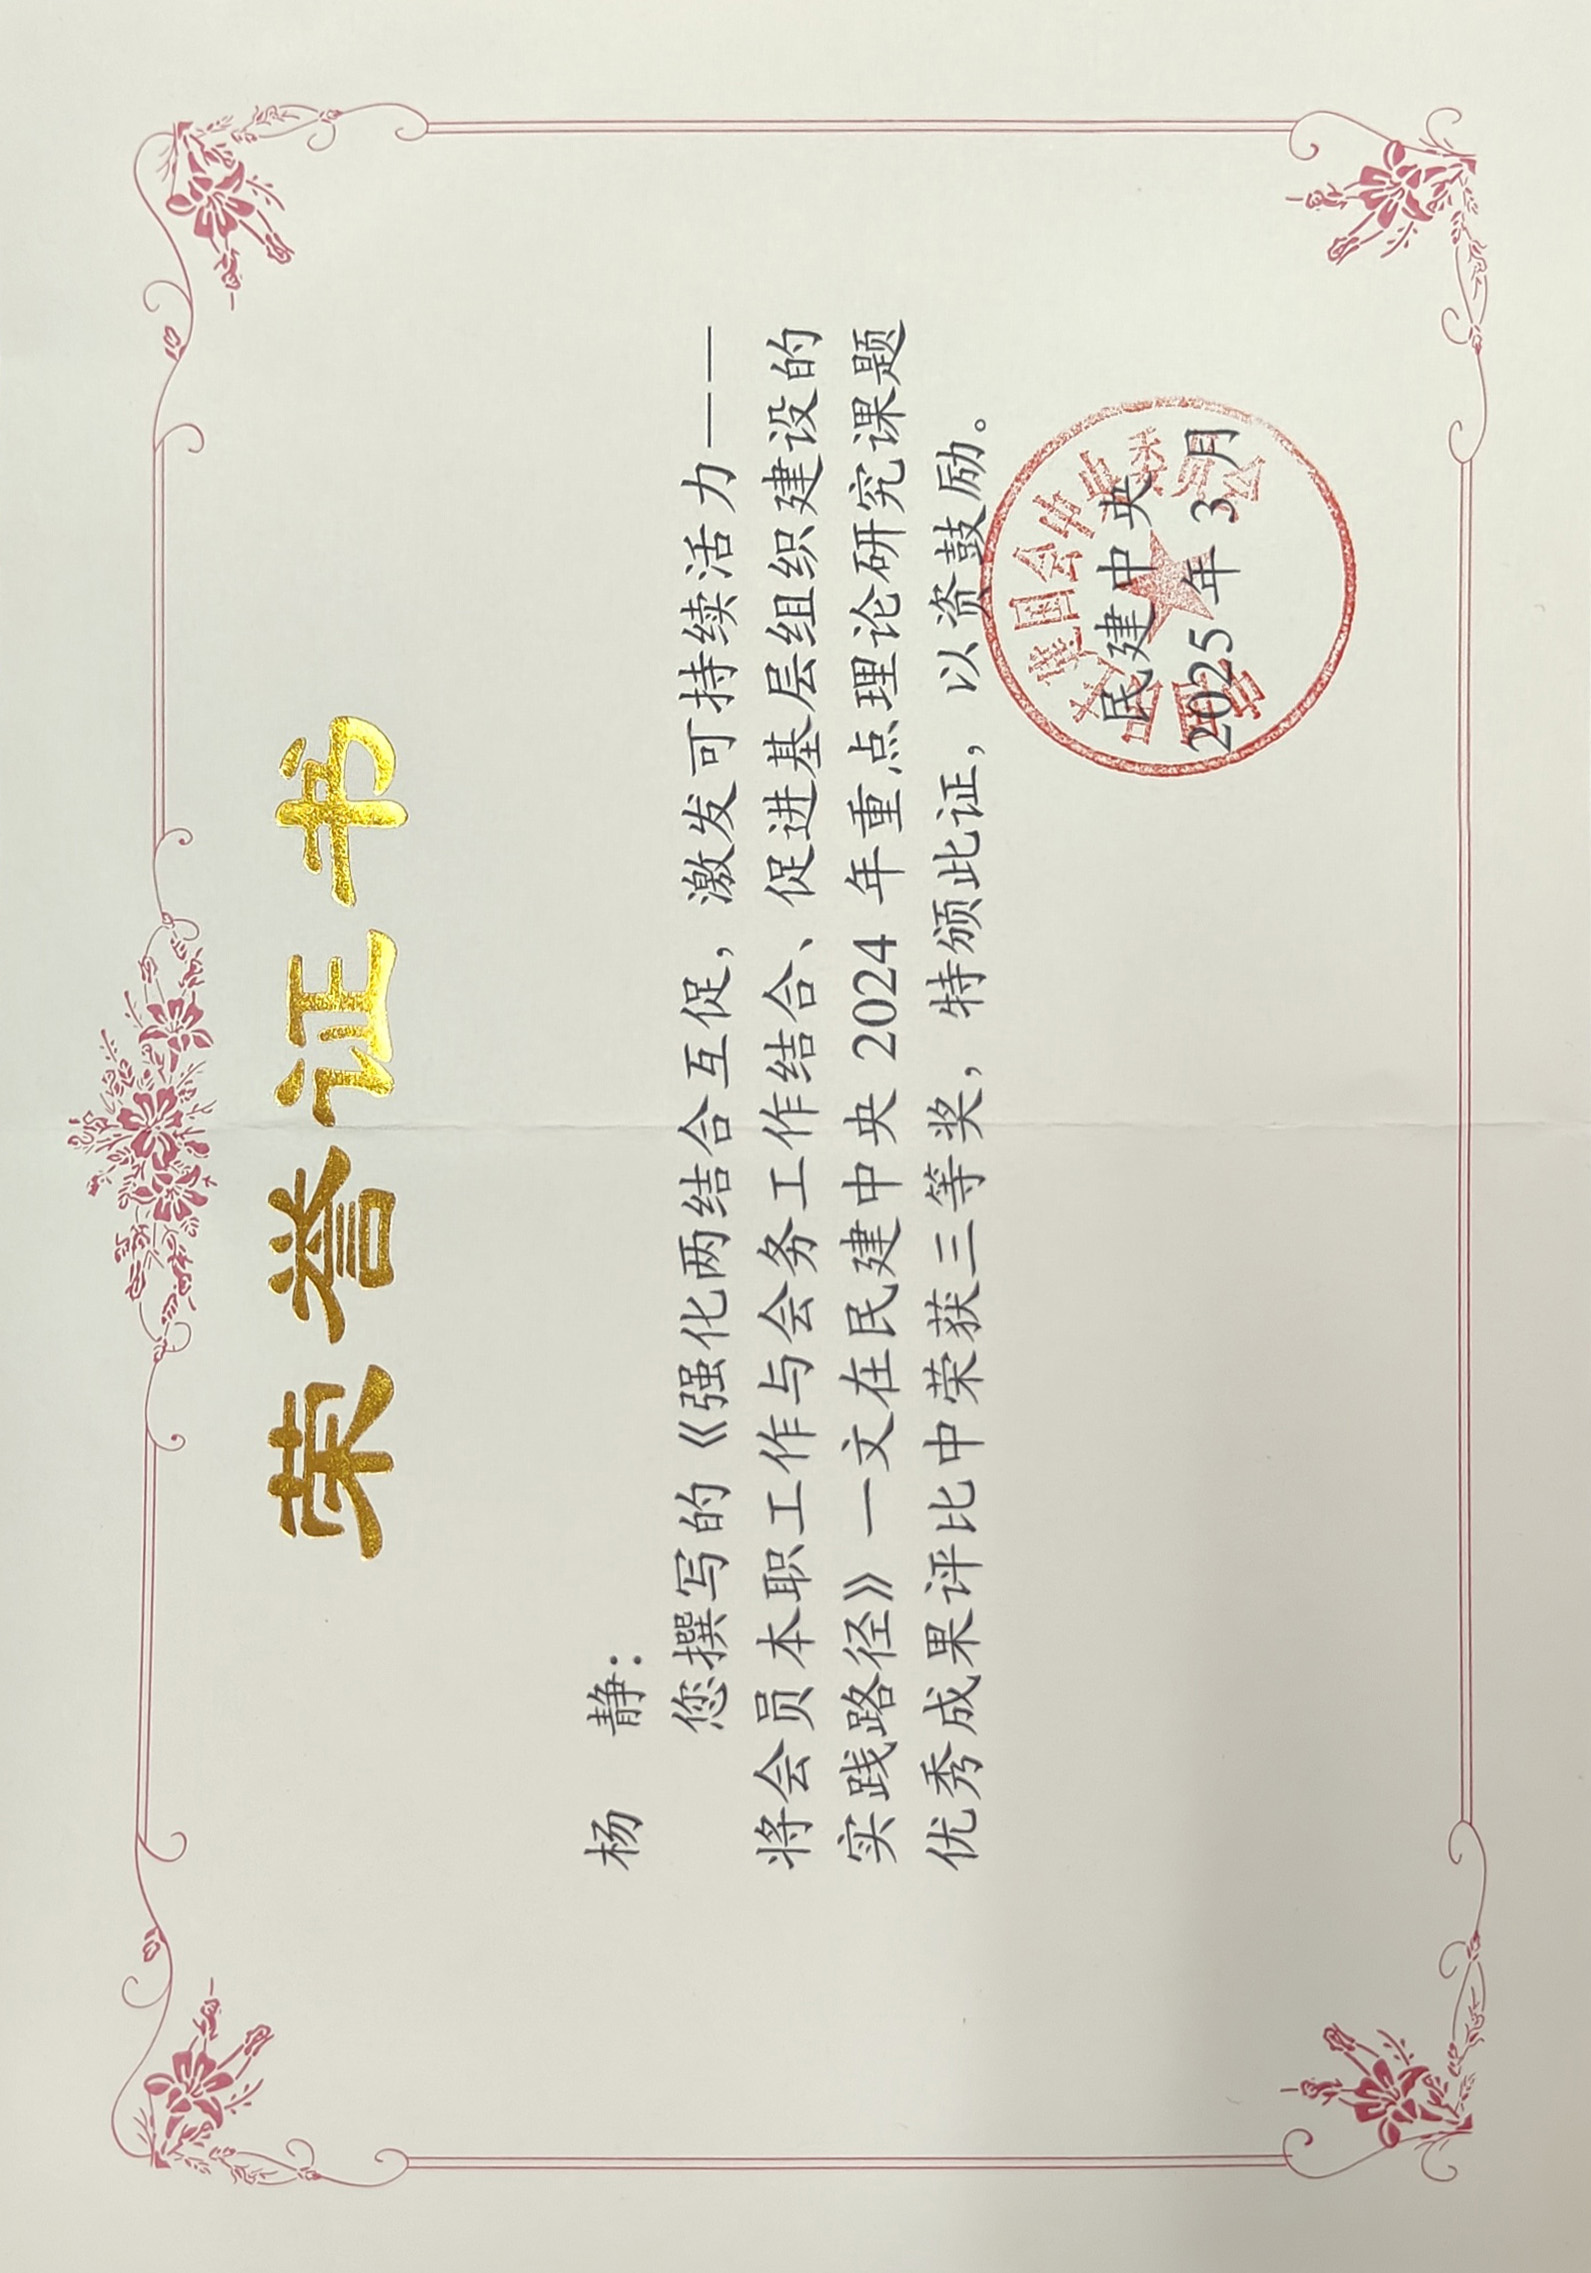 荣誉证书
杨 静：
您撰写的《强化两结合互促，激发可持续活力——
将会员本职工作与会务工作结合、促进基层组织建设的
实践路径》一文在民建中央 2024 年重点理论研究课题
优秀成果评比中荣获三等奖，特颁此证，以资鼓励。
民建中央
2025 年 3 月